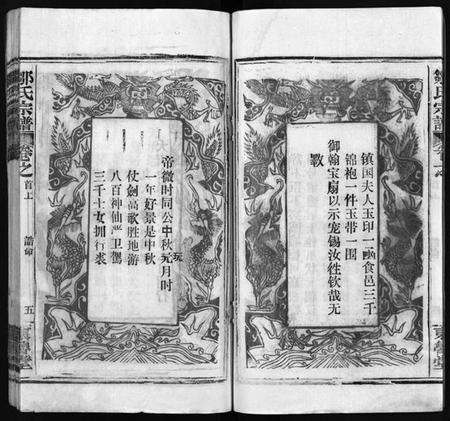 鎮国夫人玉印一凾食邑三千
锦袍一件玉带一围
御翰宝扇以示宠锡汝往钦哉无
斁
帝微时同公中秋玩月时
一年好景是中秋
仗劍高歌胜地游
八百神仙严卫駕
三千士女拥行裘
鄒氏宗譜
卷之
首上
誥命
五
鄒氏宗譜
卷之